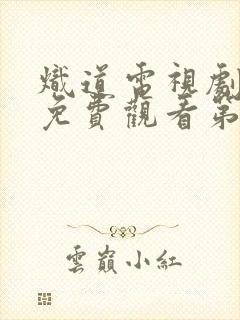 熾道電視劇
免費觀看第
雲巔小紅